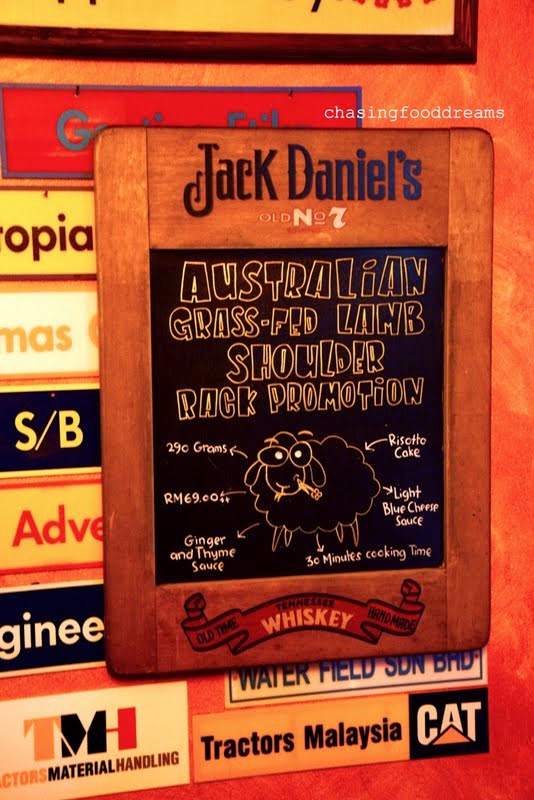 chasingfooddreams
Jack Daniel's
OLD No 7
AUSTRALIAN
GRASS-FED LAMB
SHOULDER
RACK PROMOTION
290 Grams
Risotto
Cake
RM69.00++
Light
Blue Cheese
Sauce
Ginger
and Thyme
Sauce
30 Minutes cooking Time
TENNESSEE
OLD TIME WHISKEY HAND MADE
topia
mas
S/B
Adve
ginee
WATER FIELD SDN BHD
TMH
ACTORS MATERIAL HANDLING
Tractors Malaysia
CAT